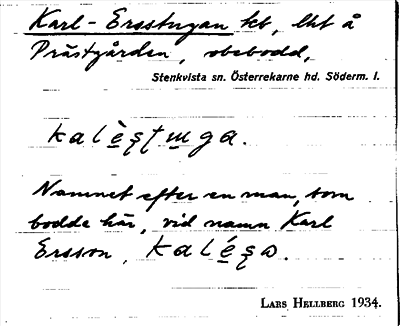 Karl-Ersstugan kt, lht å
Prästgården, obebodd,
Stenkvista sn. Österrekarne hd. Söderm. l.
kalèʂʈɯga.
Namnet efter en man, som
bodde här, vid namn Karl
Ersson, kaléʂɷ.
LARS HELLBERG 1934.